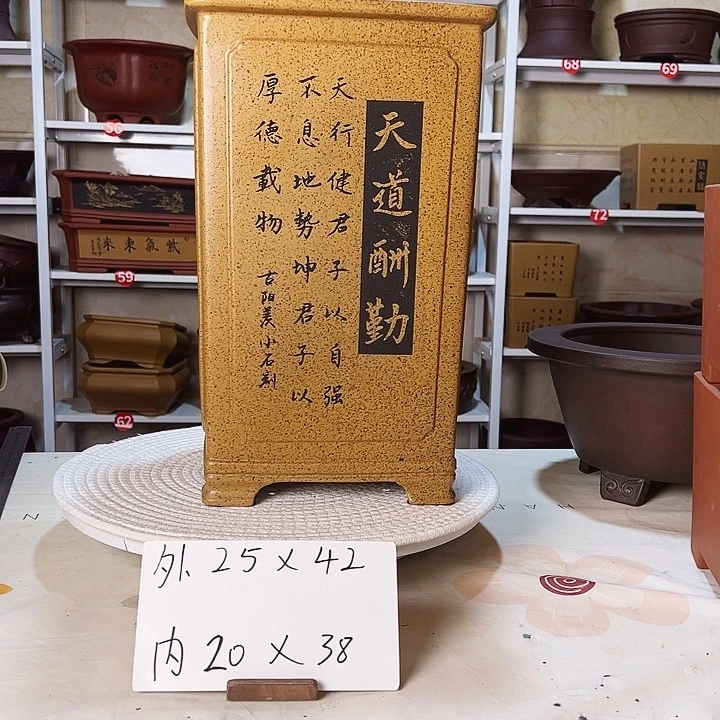 天道酬勤
天行健君子以自强
不息地勢坤君子以
厚德載物
古阳羡小石
外 25×42
内 20×38
紫氣東來
59
62
68
69
72